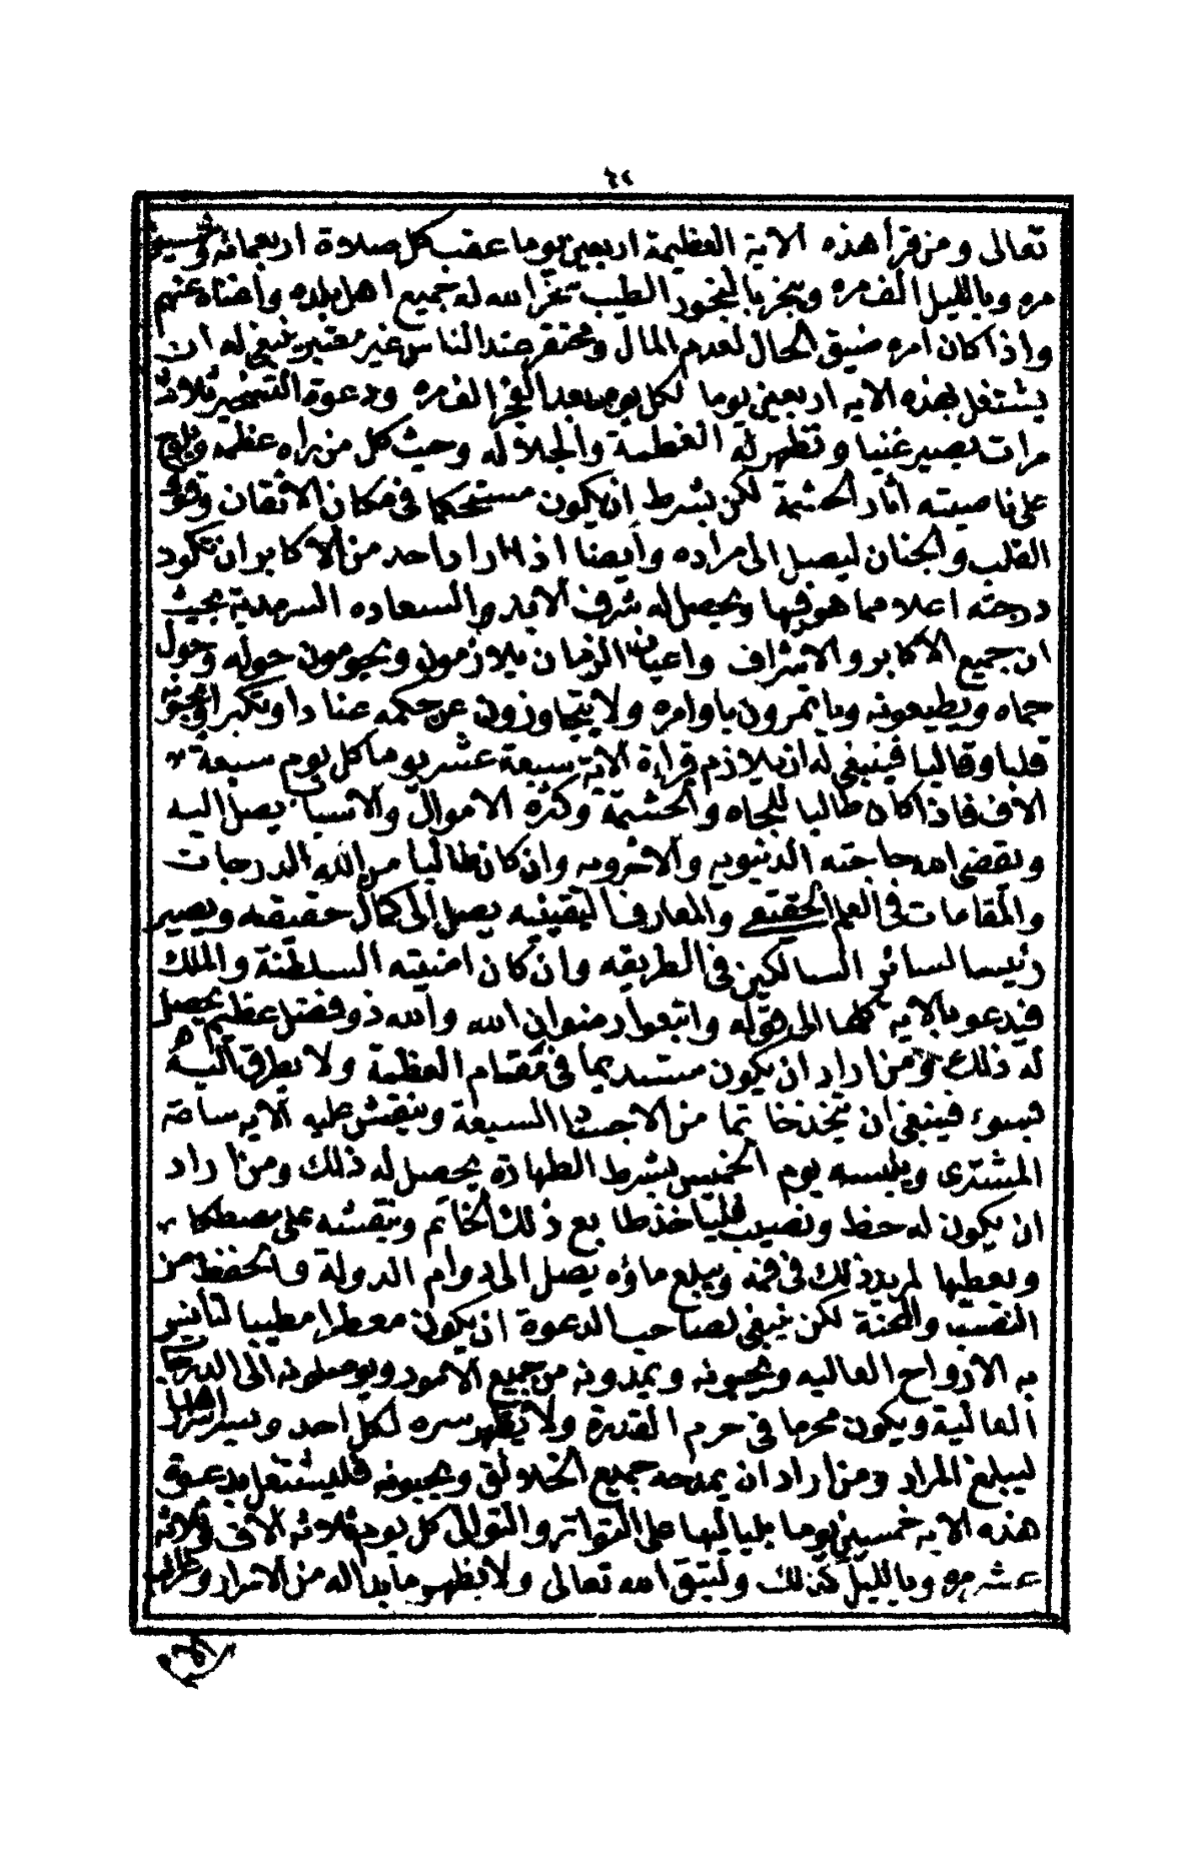 ٤٢
تعالى ومن قرأ هذه الاية العظيمة اربعين يوما عقب كل صلاة اربعمائة وخمسين
مره وبالليل الف مره ويبخر بالبخور الطيب سخر الله له جميع اهل بلده واغناه عنهم
واذا كان امره ضيق الحال لعدم المال ومحتقر عند الناس غير معتبر ينبغي له ان
يشتغل بهذه الايه اربعين يوما لكل يوم بعد الفجر الف مره ودعوة التسخير ثلاث
مرات يصير غنيا وتظهر له العظمة والجلاله وحيث كل من يراه عظمه ويلوح
على ناصيته اثار الحشمة لكن بشرط ان يكون مستحكما في مكان الاتقان وقوة
القلب والجنان ليصل الى مراده وايضا اذا اراد احد من الاكابر ان تكون
درجته اعلا مما هو فيها ويحصل له شرف الابد والسعاده السرمدية بحيث
ان جميع الاكابر والاشراف واعيان الزمان يلازمون ويحومون حوله وحول
حماه ويطيعونه وياتمرون باوامره ولا يتجاوزون عن حكمه عنادا وتكبرا ويحبونه
قلبا وقالبا فينبغي له ان يلازم قراءة الاية سبعة عشر يوما كل يوم سبعة
الاف فاذا كان طالبا للجاه والحشمة وكثرة الاموال والاسباب يصل اليه
ويقضي الله حاجته الدنيويه والاخرويه وان كان طالبا من الله الدرجات
والمقامات في العلم الحقيقي والمعارف اليقينيه يصل الى كمال حقيقته ويصير
رئيسا لسائر السالكين في الطريقه وان كان امنيته السلطنة والملك
فيدعو بالايه كلها الى قوله واتبعوا رضوان الله والله ذو فضل عظيم يحصل
له ذلك ومن اراد ان يكون مستديما في مقام العظمة ولا يطرق اليه هم
بسوء فينبغي ان يتخذ خاتما من الاجساد السبعة وينقش عليه الايه ساعة
المشترى ويلبسه يوم الخميس بشرط الطهارة يحصل له ذلك ومن اراد
ان يكون له حظ ونصيب فلياخذ طابع ذلك الخاتم وينقشه على مصطكا
ويعطيها لمريد ذلك في فمه ويبلع ماؤه يصل الى دوام الدولة والحفظ من
النصب والمحنة لكن ينبغي لصاحب الدعوة ان يكون معطرا مطيبا لتأنيس
به الارواح العاليه ويحبونه ويمدونه من جميع الامور ويوصلونه الى الدرجات
العالية ويكون محرما في حرم القدرة ولا يظهر سره لكل احد ويستر اسرار
ليبلغ المراد ومن اراد ان يمدحه جميع الخلائق ويحبونه فليشتغل بدعوة
هذه الايه خمسين يوما بلياليها على التواتر والتوالي كل يوم ثلاثه الاف وثلاثه
عشر مره وبالليل كذلك وليتق الله تعالى ولا يظهر ما بدا له من الاسرار وغرائب